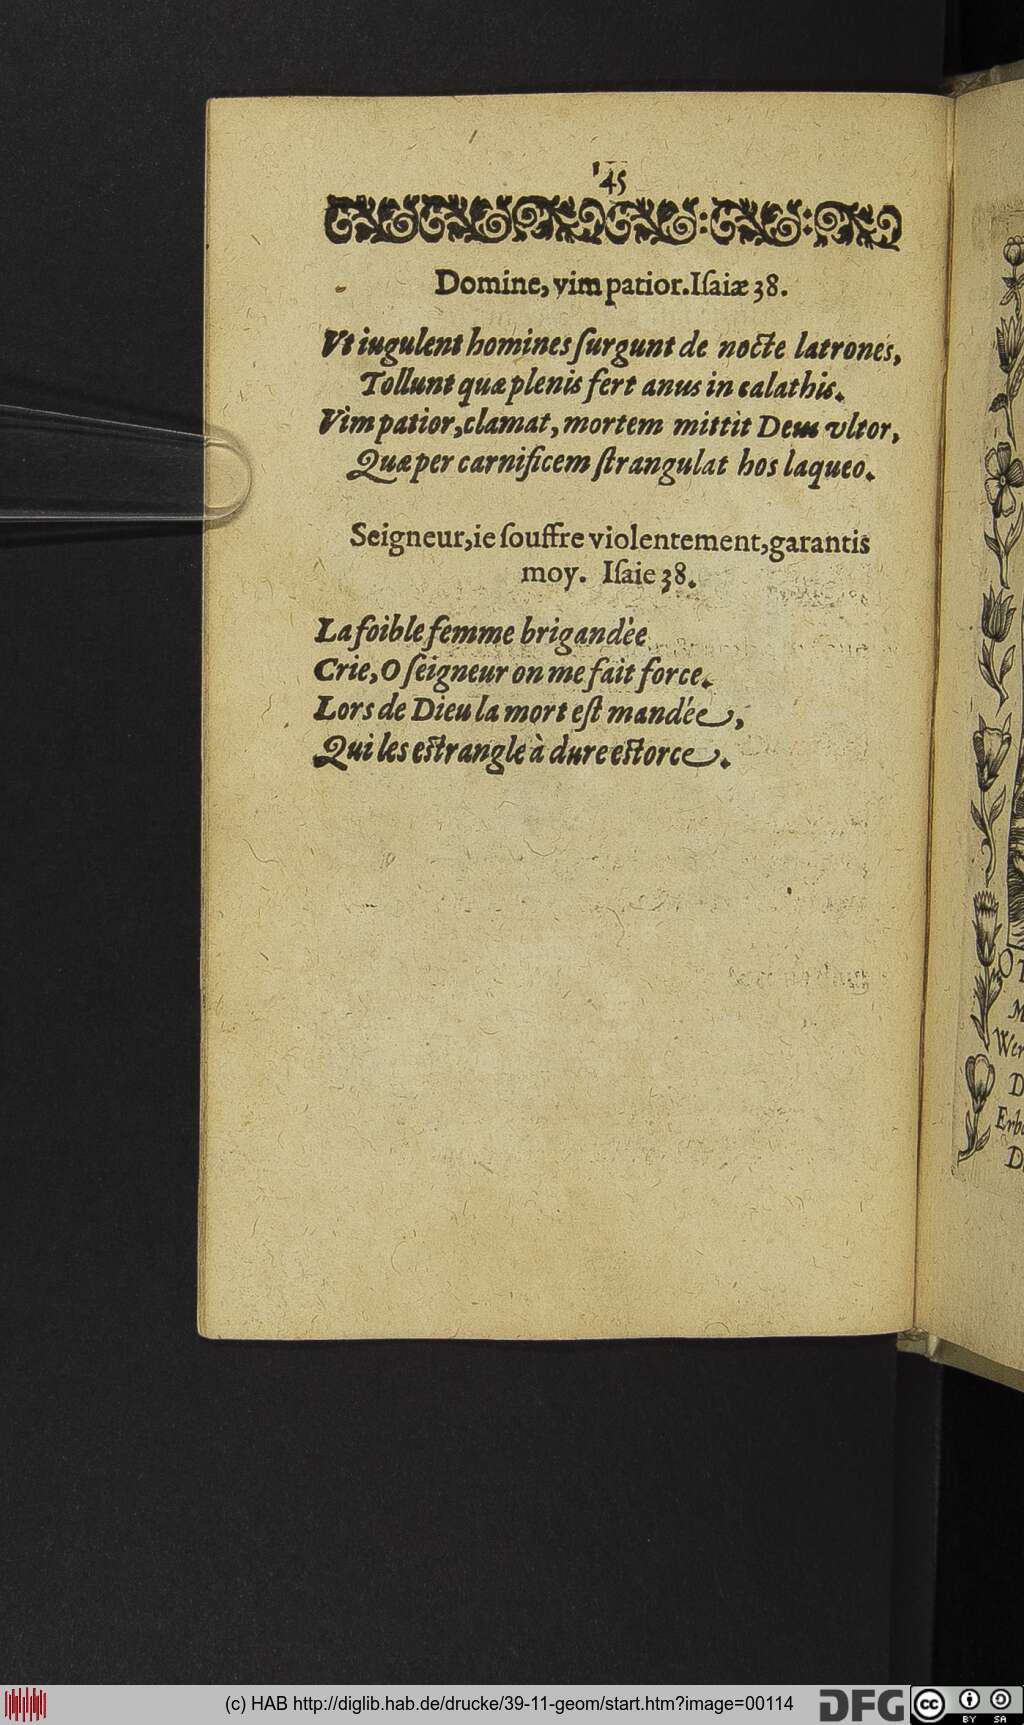 45
Domine, vim patior. Iſaiæ 38.
Vt iugulent homines ſurgunt de nocte latrones,
Tollunt quæ plenis fert anus in calathis.
Vim patior, clamat, mortem mittit Deus vltor,
Quæ per carnificem ſtrangulat hos laqueo.
Seigneur, ie ſouffre violentement, garantis
moy. Iſaie 38.
La foible femme brigandée
Crie, O ſeigneur on me fait force.
Lors de Dieu la mort eſt mandée,
Qui les eſtrangle à dure eſtorce.
O
Wer
D
Erbo
(c) HAB http://diglib.hab.de/drucke/39-11-geom/start.htm?image=00114
DFG
cc BY SA